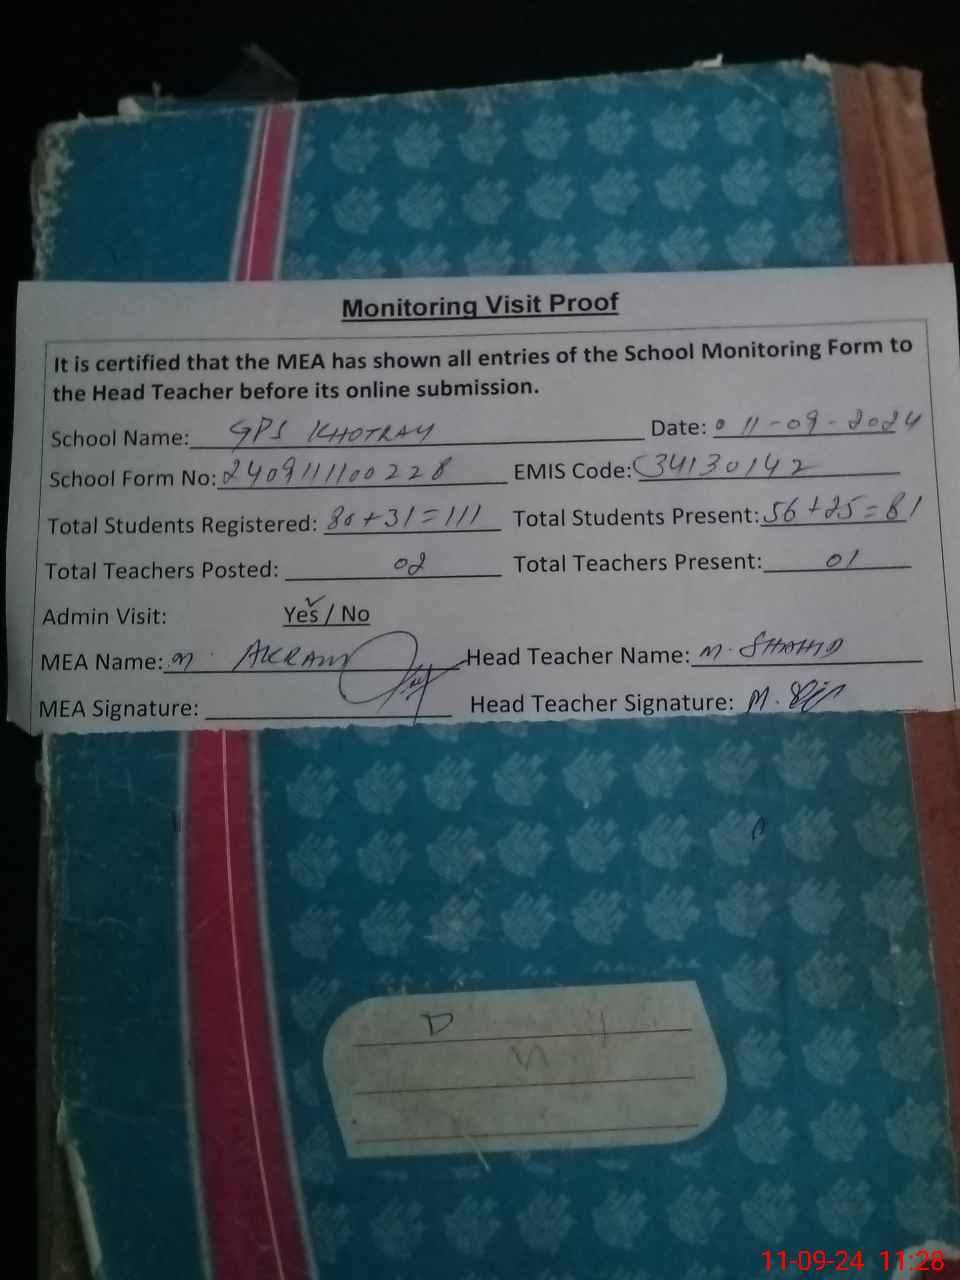 Monitoring Visit Proof
It is certified that the MEA has shown all entries of the School Monitoring Form to
the Head Teacher before its online submission.
School Name: GPS KHOTRAY Date: 11-09-2024
School Form No: 2409111100228 EMIS Code: 34130142
Total Students Registered: 80+31=111 Total Students Present: 56+25=81
Total Teachers Posted: 02 Total Teachers Present: 01
Admin Visit: Yes / No
MEA Name: M. AKRAM Head Teacher Name: M. SHAHID
MEA Signature: Head Teacher Signature: M.
D
11-09-24 11:28